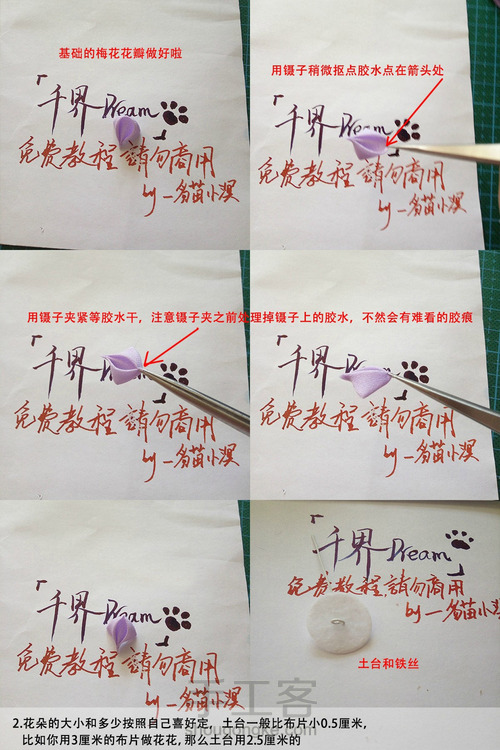 基础的梅花花瓣做好啦
「千界Dream」
免费教程 請勿商用
by 一
用镊子稍微抠点胶水点在箭头处
「千界Dream」
免费教程 請勿商用
by 一
用镊子夹紧等胶水干，注意镊子夹之前处理掉镊子上的胶水，不然会有难看的胶痕
「千界Dream」
免费教程 請勿商用
by 一
「千界Dream」
免费教程 請勿商用
by 一
「千界Dream」
免费教程 請勿商用
by 一
「千界Dream」
免费教程,請勿商用
by 一
土台和铁丝
手工客
2.花朵的大小和多少按照自己喜好定，土台一般比布片小0.5厘米，
比如你用3厘米的布片做花花,那么土台用2.5厘米的